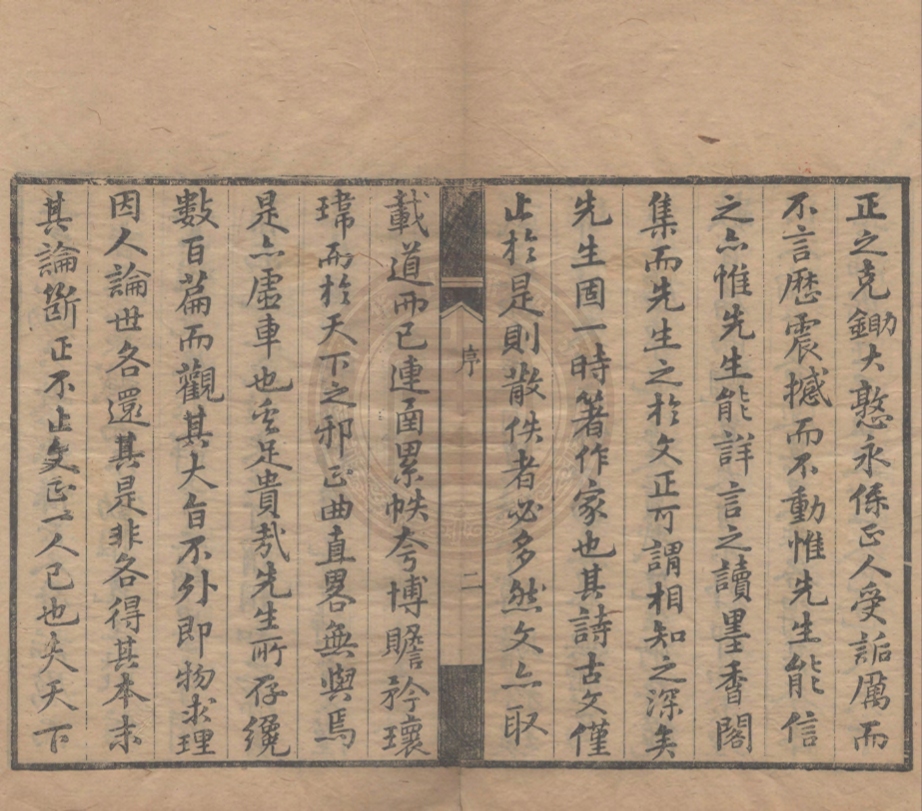 正之克鋤大憝永保正人受詬厲而
不言歷震撼而不動惟先生能信
之亦惟先生能詳言之讀墨香閣
集而先生之於文正可謂相知之深矣
先生固一時著作家也其詩古文僅
止於是則散佚者必多然文亦取
序
二
載道而已連圅累帙夸博贍矜瓌
瑋而於天下之邪正曲直畧無與焉
是亦虛車也奚足貴哉先生所存纔
數百篇而觀其大旨不外即物求理
因人論世各還其是非各得其本末
其論斷正不止文正一人已也夫天下